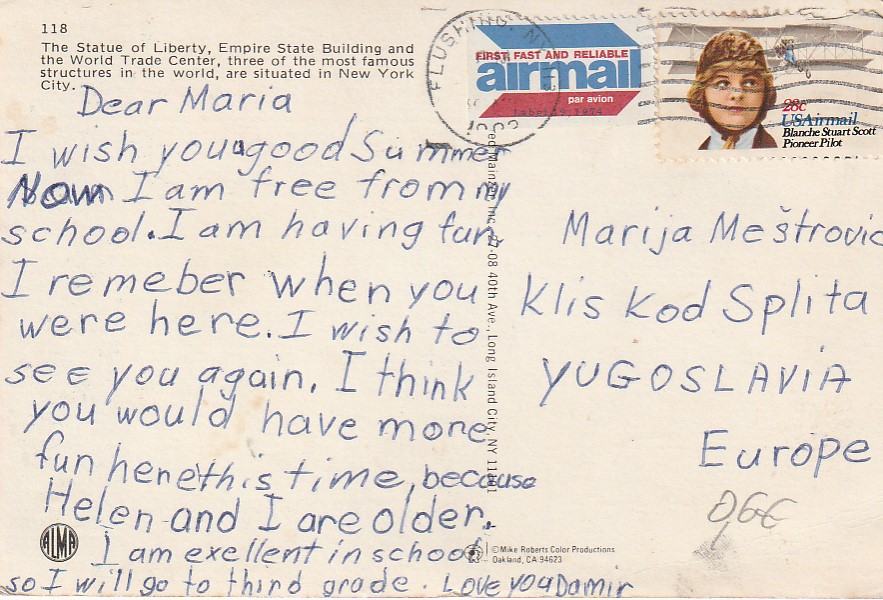 118
The Statue of Liberty, Empire State Building and
the World Trade Center, three of the most famous
structures in the world, are situated in New York
City.
Dear Maria
I wish you a good Summer
Now I am free from my
school. I am having fun.
I remeber when you
were here. I wish to
see you again. I think
you would have more
fun here this time, because
Helen and I are older.
I am exellent in school
so I will go to third grade. Love you Damir
ALMA
FLUSHING, NY
FIRST, FAST AND RELIABLE
airmail
par avion
Label 19, 1974
28c
USAirmail
Blanche Stuart Scott
Pioneer Pilot
Inc. 40th Ave., Long Island City, NY
©Mike Roberts Color Productions
Oakland, CA 94623
Marija Meštrovic
Klis kod Splita
YUGOSLAVIA
Europe
0,6€